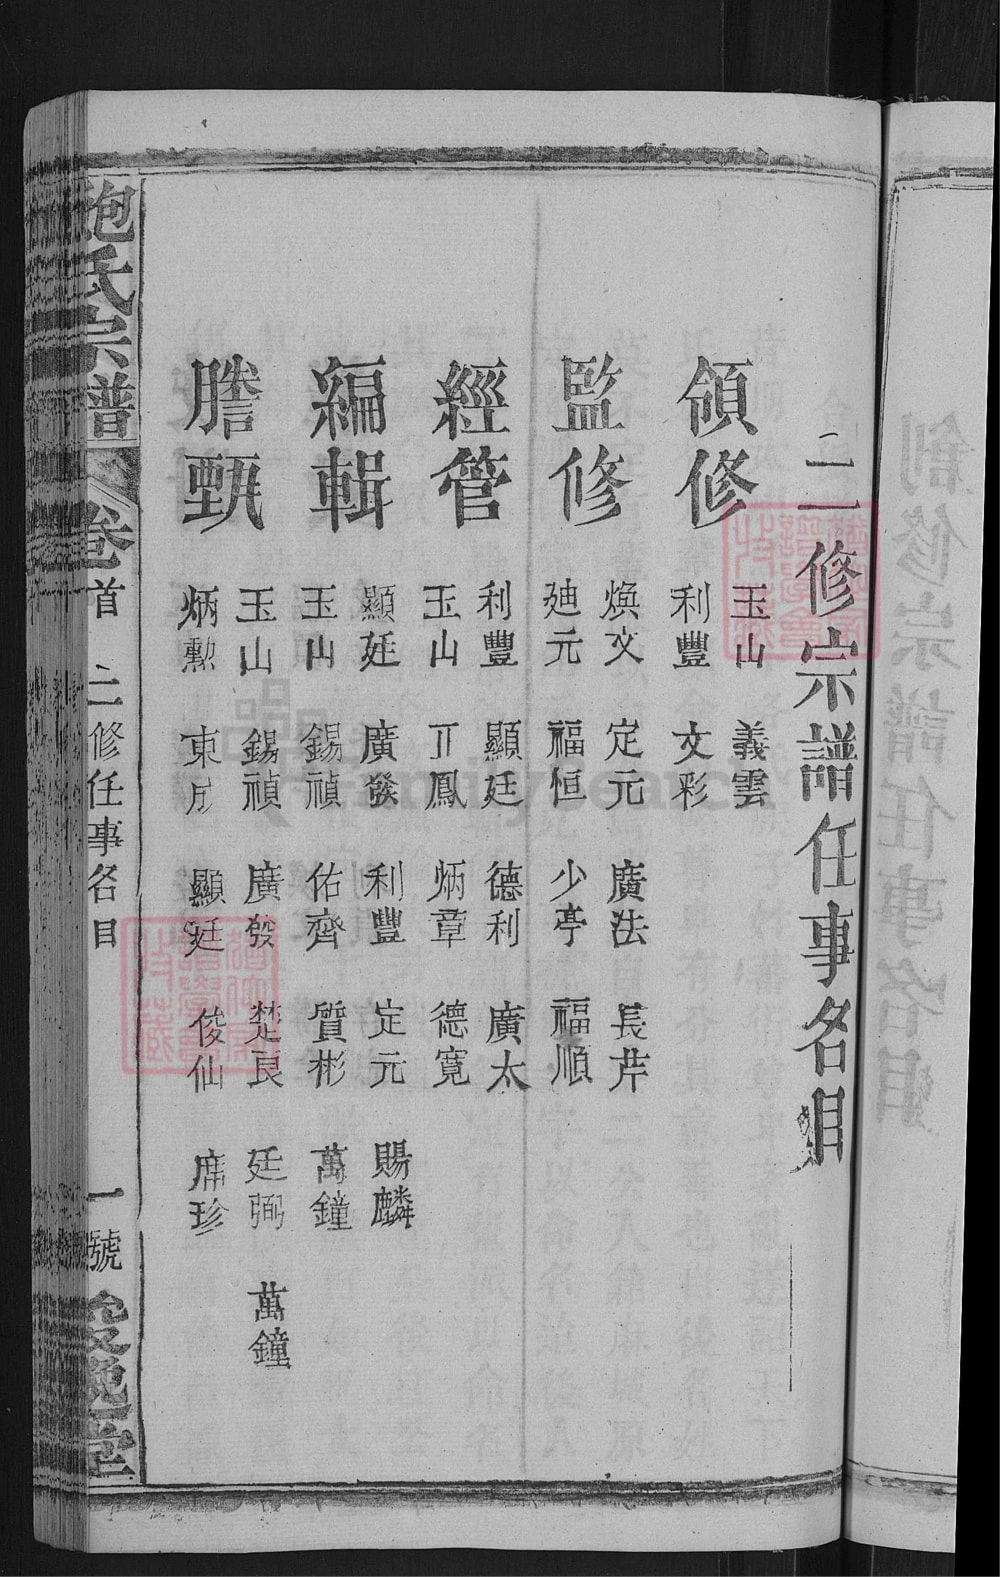 二修宗譜任事名目
領修
玉山 義雲
利豐 文彩
監修
煥文 定元 廣法 長芹
廸元 福恒 少亭 福順
經管
利豐 顯廷 德利 廣太
玉山 丌鳳 炳章 德寬
編輯
顯廷 廣發 利豐 定元 賜麟
玉山 錫禎 佑齊 質彬 萬鐘
謄甄
玉山 錫禎 廣發 楚良 廷弼 萬鐘
炳勲 東 顯廷 俊仙 席珍
氏宗譜
卷首 二修任事名目 一號
堂
FamilySearch